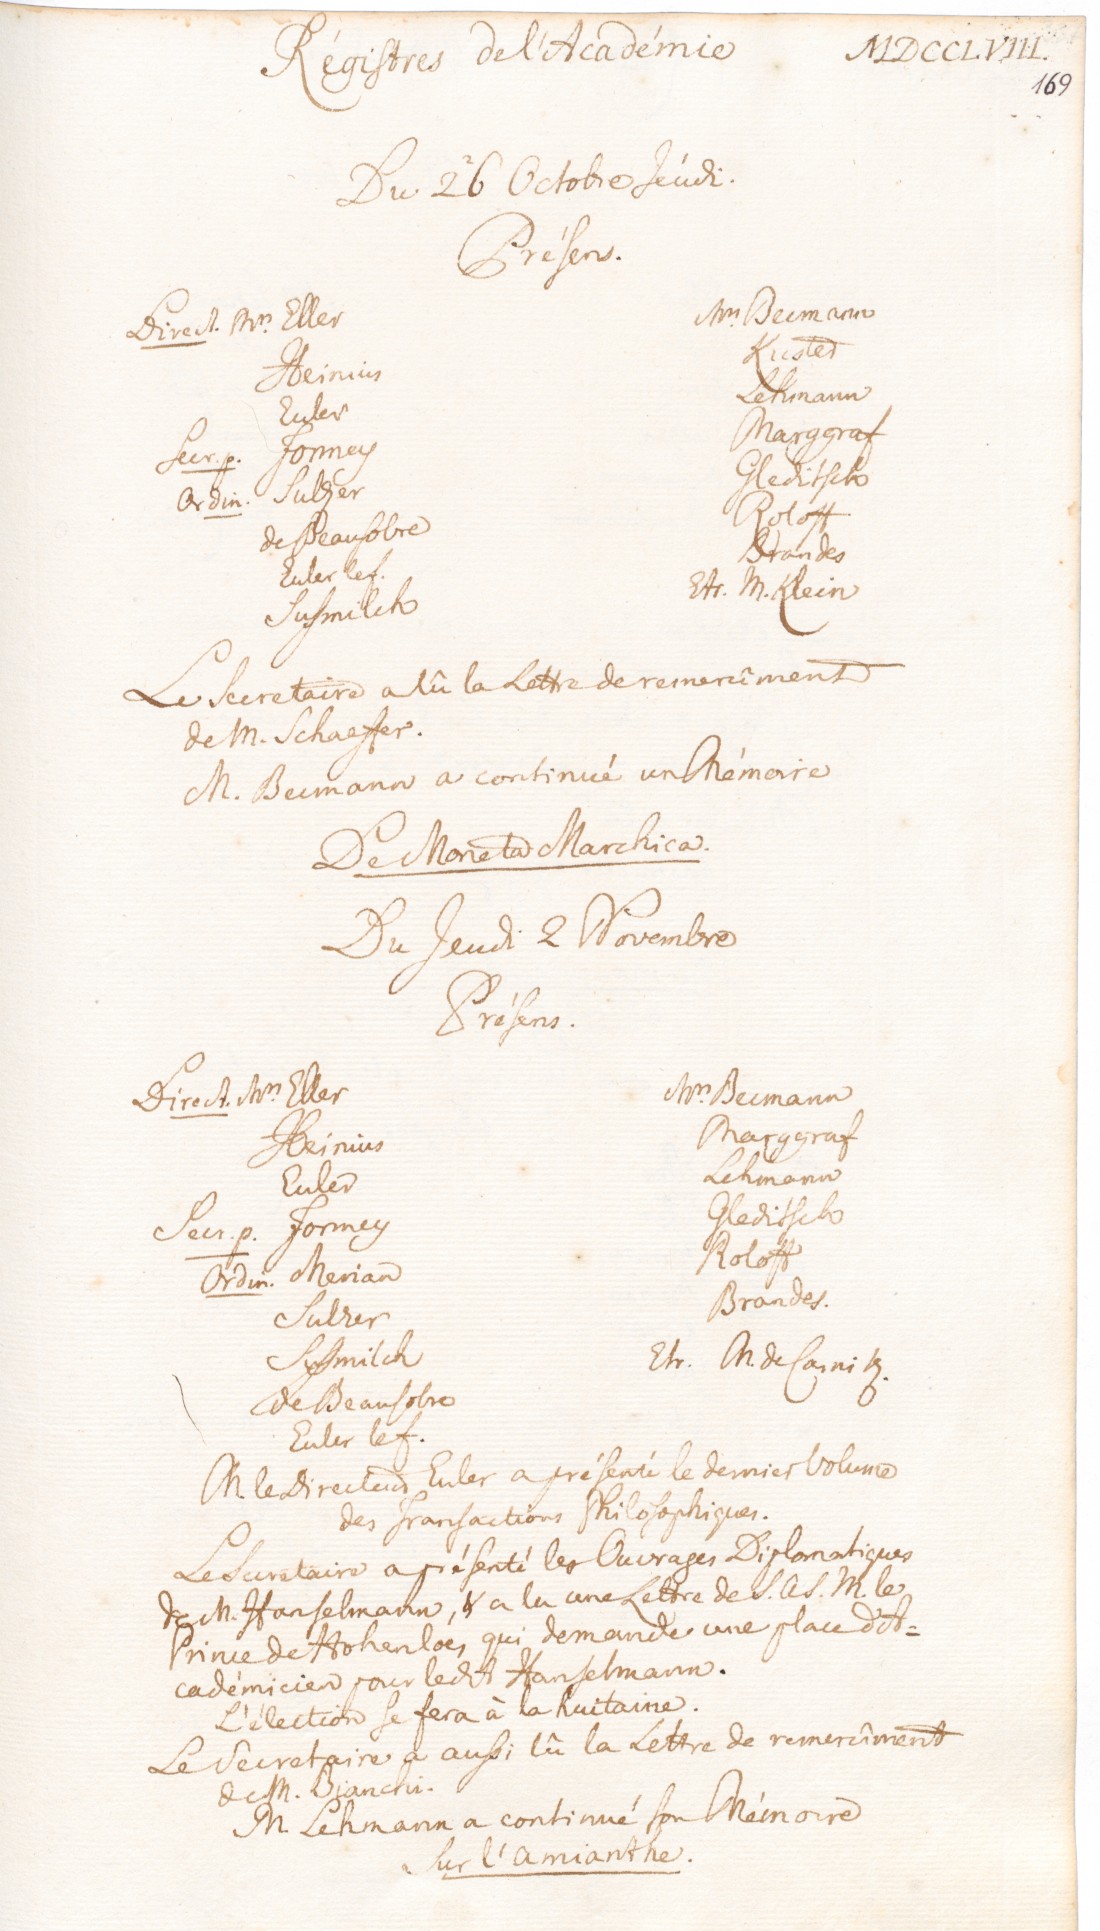 Régistres de l'Académie MDCCLVIII.
169
Du 26 Octobre Jeudi.
Présens.
Direct. Mrs Eller
Heinius
Euler
Secr. p. Formey
Ordin. Sulzer
de Beausobre
Euler le f.
Susmilch
Mrs Becmann
Kuster
Lehmann
Marggraf
Gleditsch
Roloff
Brandes
Etr. M. Klein
Le Secretaire a lû la Lettre de remercîment
de M. Schaeffer.
M. Becmann a continué un Mémoire
De Moneta Marchica.
Du Jeudi 2 Novembre
Présens.
Direct. Mrs Eller
Heinius
Euler
Secr. p. Formey
Ordin. Merian
Sulzer
Susmilch
de Beausobre
Euler le f.
Mrs Becmann
Marggraf
Lehmann
Gleditsch
Roloff
Brandes.
Etr. M. de Carnitz.
M. le Directeur Euler a présenté le dernier Volume
des Transactions Philosophiques.
Le Secretaire a présenté les Ouvrages Diplomatiques
de M. Hanselmann, & a lu une Lettre de S. A. S. M. le
Prince de Hohenloë, qui demande une place d'A-
cadémicien pour ledit Hanselmann.
L'élection se fera à la huitaine.
Le Secretaire a aussi lû la Lettre de remercîment
de M. Bianchi.
M. Lehmann a continué son Mémoire
sur l'amianthe.